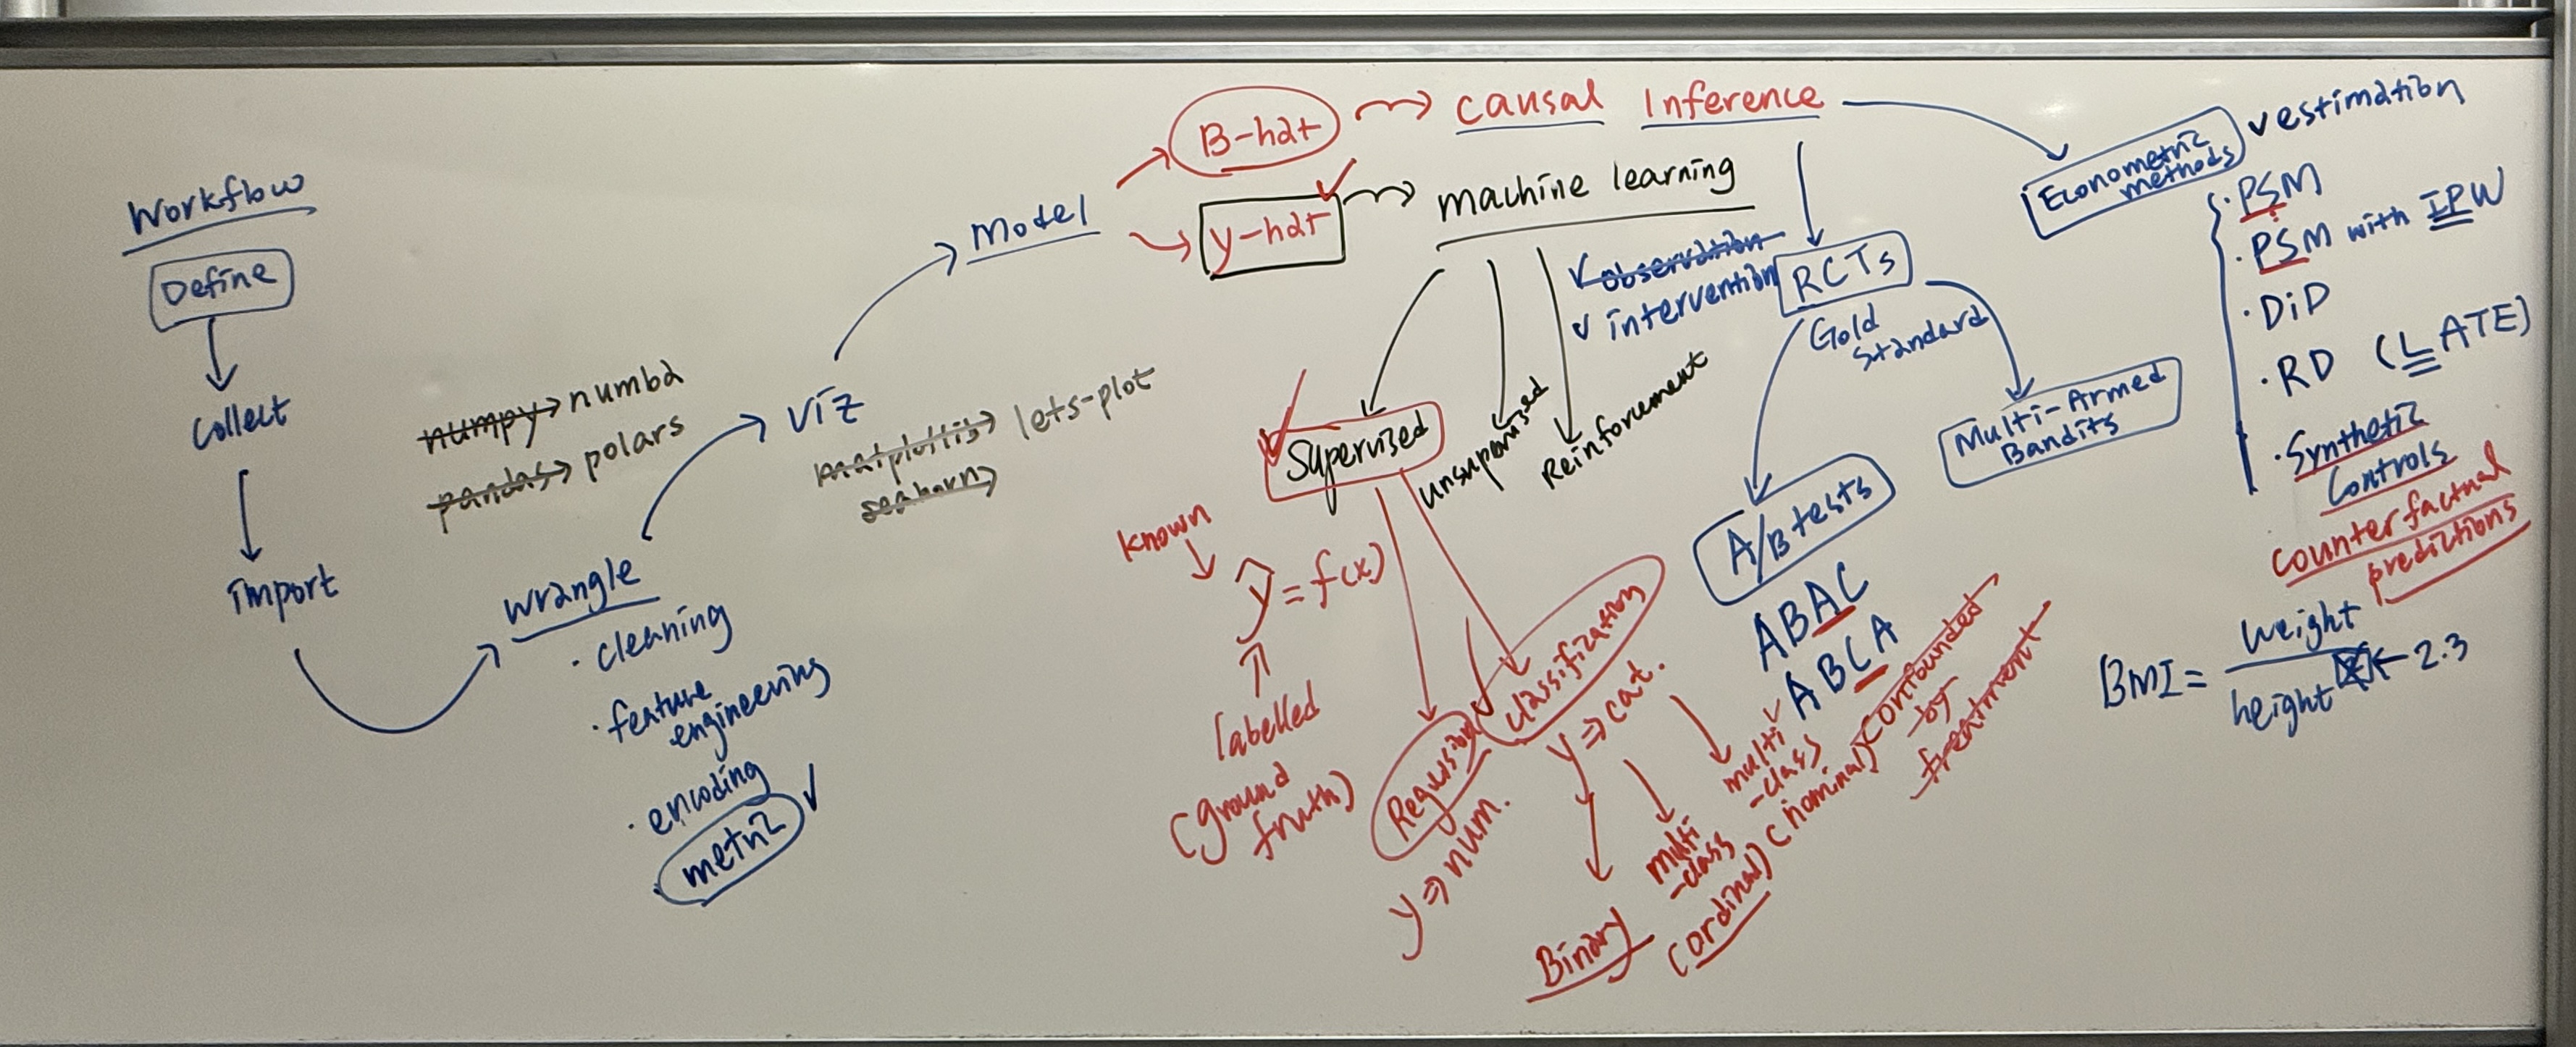 Workflow
Define
Collect
import
wrangle
· cleaning
· feature
engineering
· encoding
metric
numpy → numba
pandas → polars
viz
matplotlib → lets-plot
seaborn →
Model
B-hat
y-hat
causal Inference
machine learning
Supervized
unsupervized
Reinforcement
known
ŷ = f(x)
labelled
(ground
truth)
Regression
y ⇒ num.
classification
y ⇒ cat.
Binary
multi
-class
(ordinal)
multi
-class
(nominal)
✓ observation
✓ intervention
RCTs
Gold
standard
A/B tests
ABAC
ABCA
confounded
by
treatment
Multi-Armed
Bandits
Econometric
methods
✓ estimation
· PSM
· PSM with IPW
· DiD
· RD (LATE)
· Synthetic
Controls
counterfactual
predictions
BMI = weight
height ← 2.3